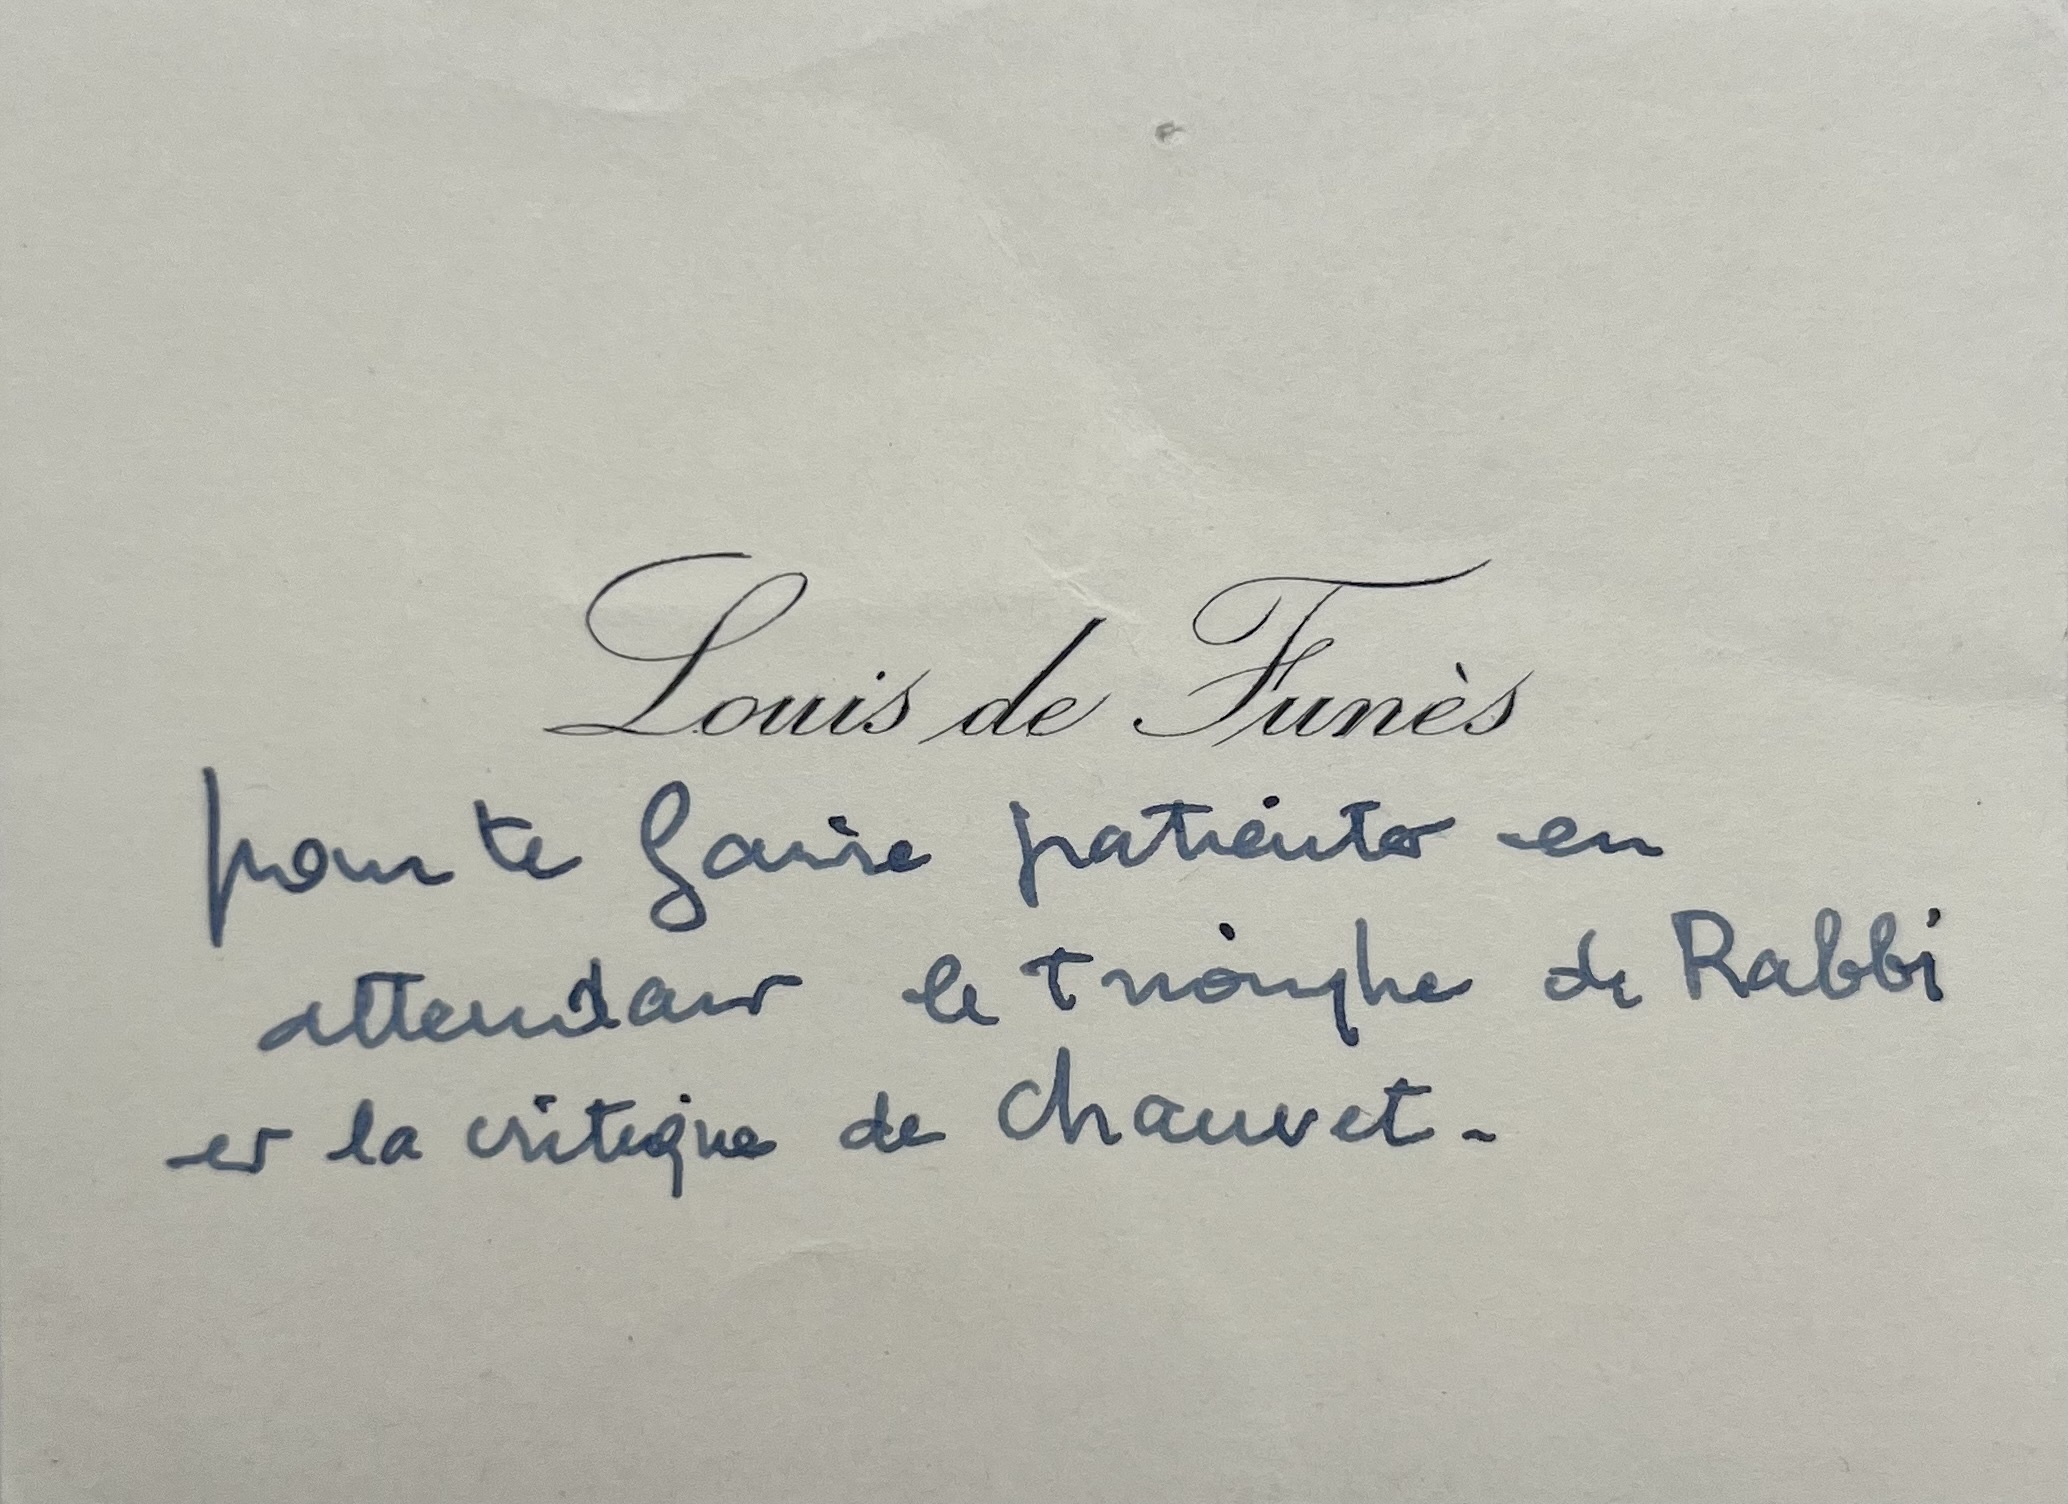 Louis de Funès
pour te faire patienter en
attendant le triomphe de Rabbi
et la critique de Chauvet.